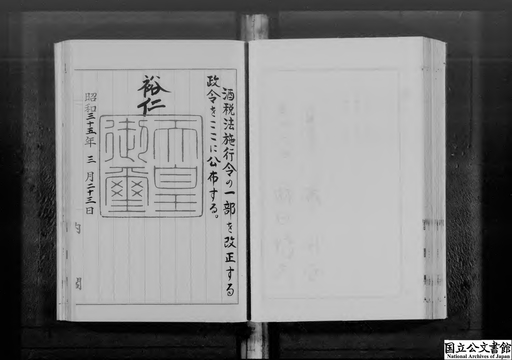 酒税法施行令の一部を改正する
政令をここに公布する。
裕仁
天皇
御璽
昭和三十五年三月二十三日
内閣
国立公文書館
National Archives of Japan